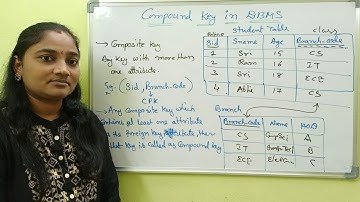 Compound Key in DBMS
→ Composite Key
Any Key with more than
one attribute.
Eg: (Sid, Branch-code)
↓
CPK
→ Any Composite Key which
Contains at least one attribute
as its foreign key attribute, then
that key is called as Compound Key
Student Table
class
Sid Sname Age Branch-code
1 Sri 15 CS
2 Ram 16 IT
3 Sri 18 ECE
4 Abhi 17 CS
Branch
Branch-code Name HoD
CS CompSci A
IT B
ECE C